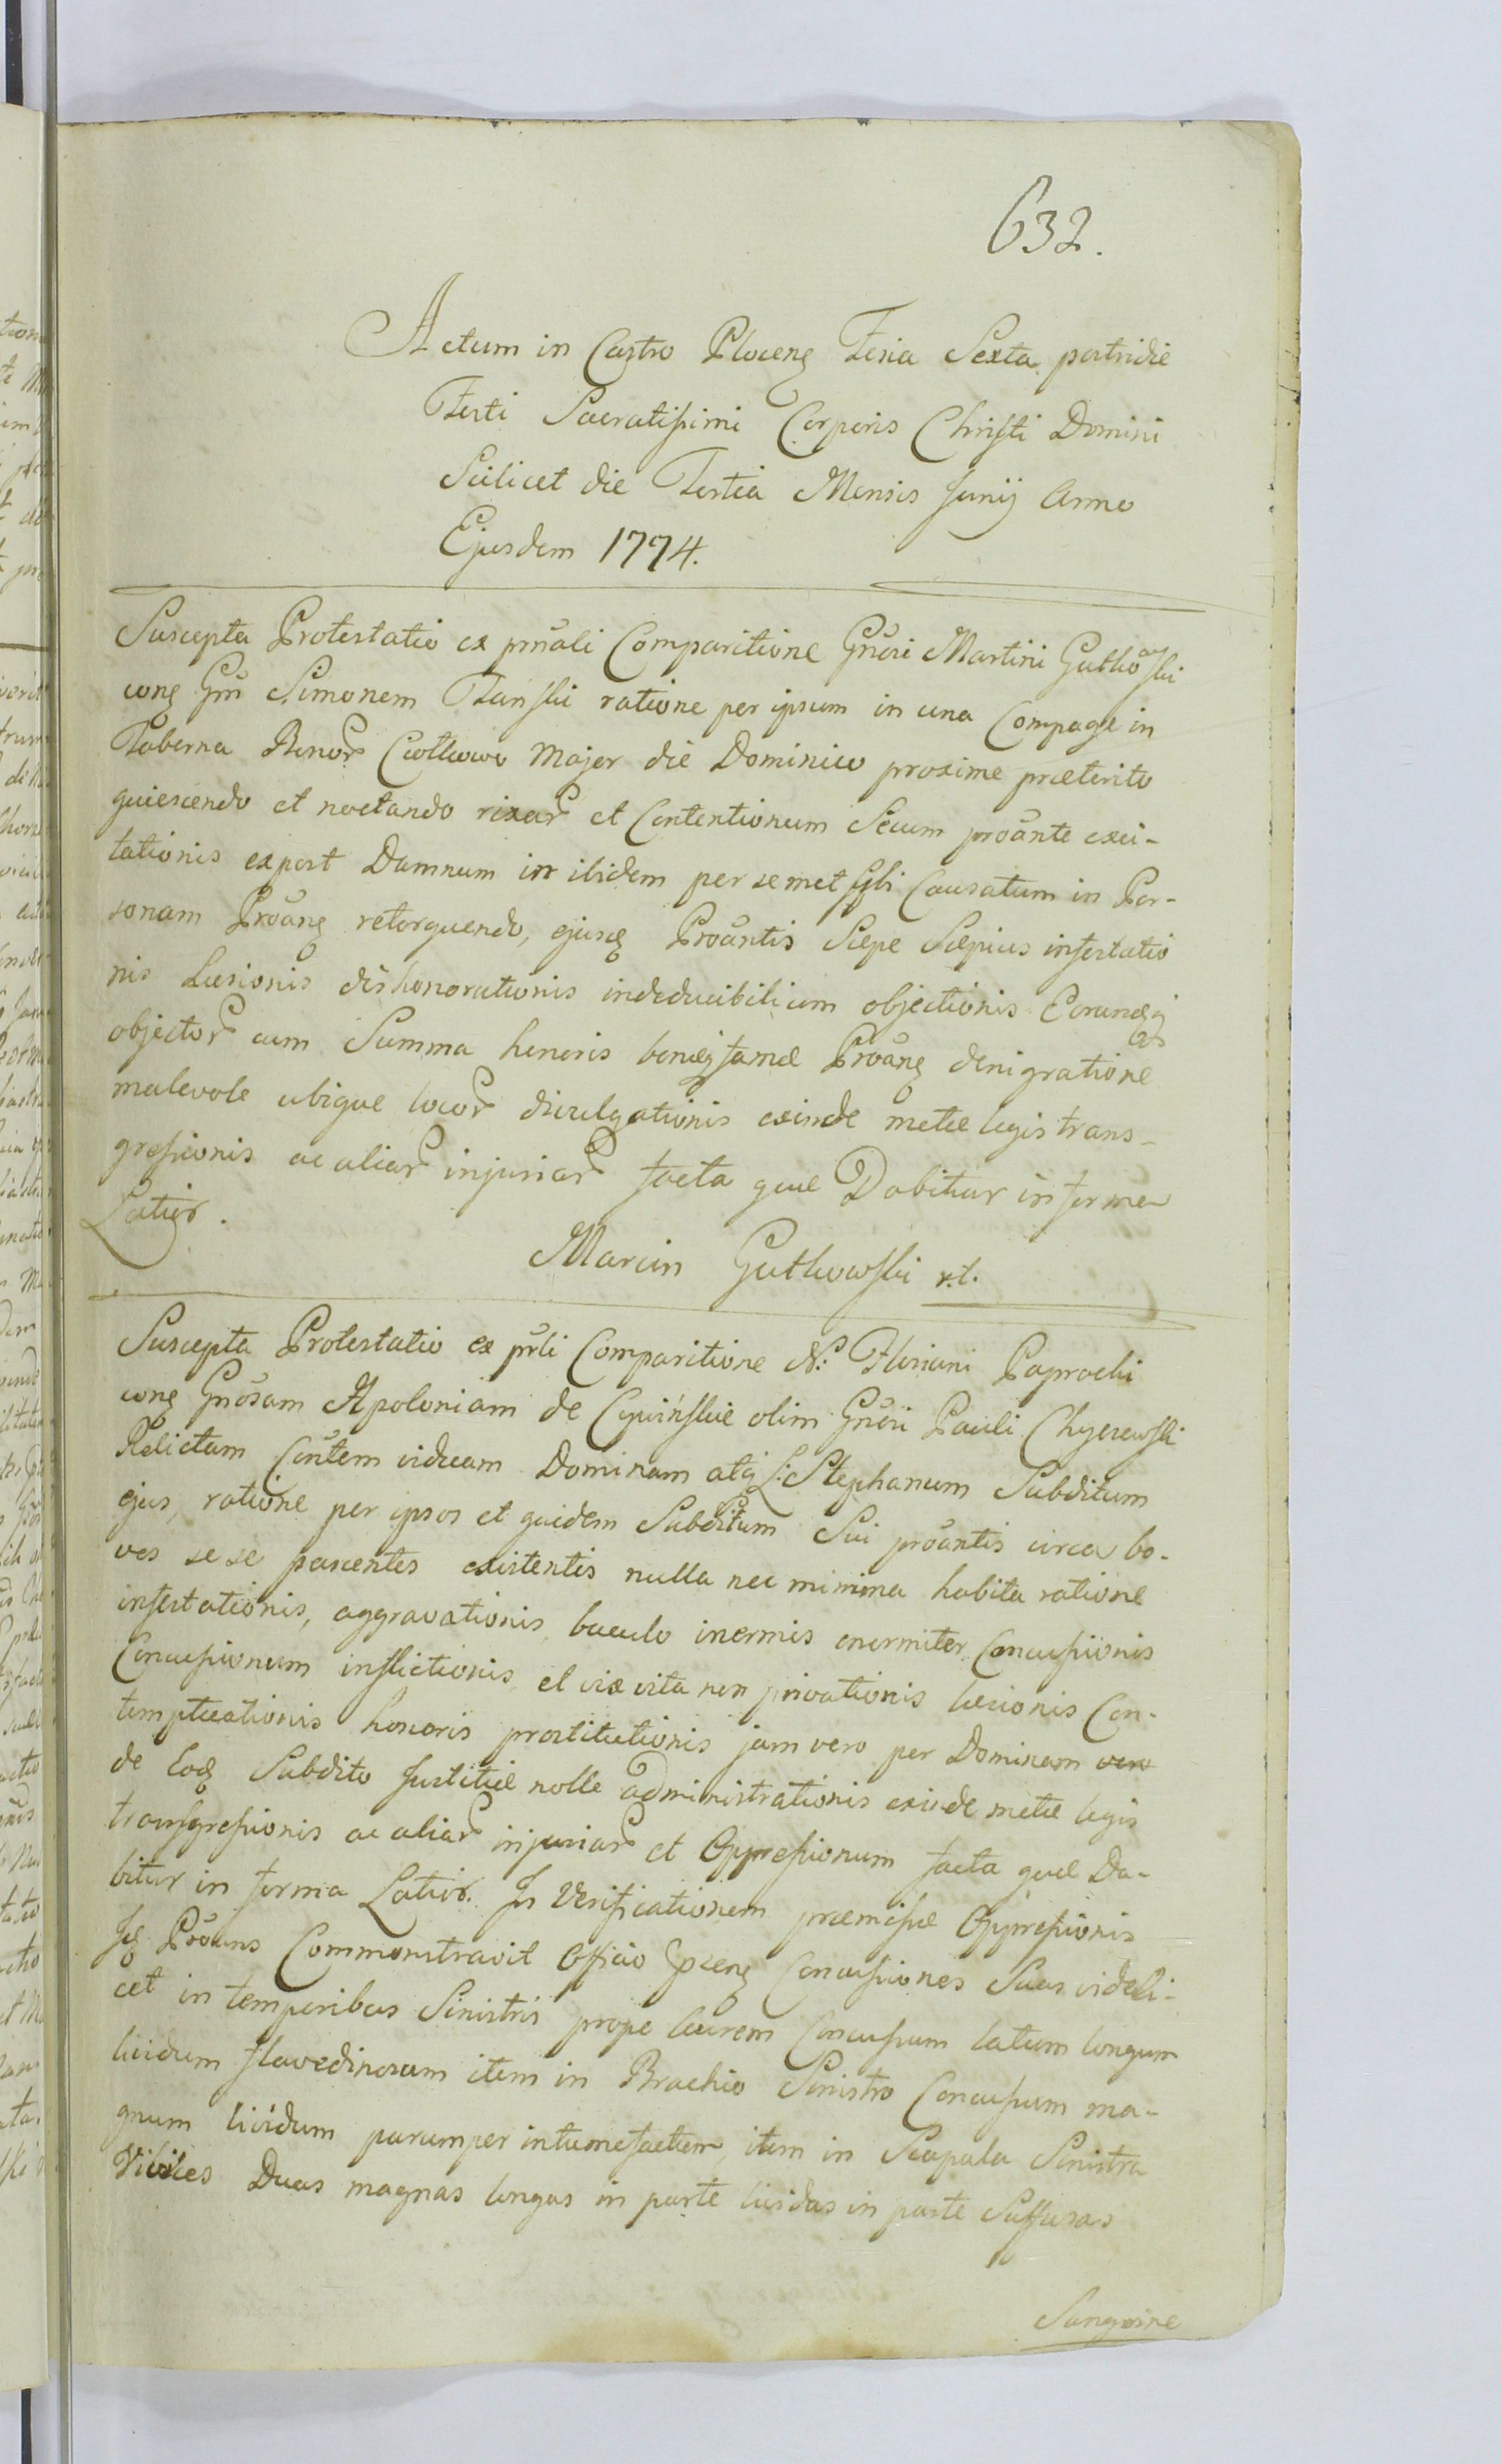 632.
Actum in Castro Plocenȝ Feria Sexta postridie
Festi Sacratissimi Corporis Christi Domini
Scilicet die Tertia Mensis Junij Anno
Ejusdem 1774.
Suscepta Protestatio ex prnali Comparitione Gnosi Martini Gutkowski
conȝ Gnm Simonem ratione per ipsum in una Compage in
Taberna Bonor Ciołkowo Major die Dominico proxime præterito
quiescendo et noctando rixar et Contentionum Secum proante exci-
tationis expost Damnum in ibidem per semet Causatum in Per-
sonam Proanȝ retorquendo, ejusȝ Proantis Sæpe Sæpius infestatio
nis Læsionis dishonorationis indeducibilium objectionis Eorundȝ
objector cum Summa honoris bonæȝ famæ Proanȝ denigratione
malevole ubique locor divulgationis exinde metæ legis trans-
gressionis ac aliar injuriar facta quæ Dabitur in forma
Latior.
Marcin Gutkowski
Suscepta Protestatio ex prli Comparitione N: Floriani Paprocki
conȝ Gnosam Apoloniam de olim Gnosi Pauli
Relictam viduam Dominam atq L: Stephanum Subditum
ejus, ratione per ipsos et quidem Subditum Sui proantis circa bo-
ves sese pascentes existentis nulla nec minima habita ratione
infestationis, aggravationis, baculo inermis enormiter Concussionis
Concussionum inflictionis et vix vita non privationis læsionis Con-
honoris prostitutionis jam vero per Dominam vero
de Eodȝ Subdito Justitiæ nolle administrationis exinde metæ legis
transgressionis ac aliar injuriar et Oppressionum facta quæ Da-
bitur in forma Latior. In Verificationem præmissæ Oppressionis
Proans Commonstravit Officio Concussiones Suas videli-
cet in temporibus Sinistris prope aurem Concussum latum longum
lividum flavedinosum item in Brachio Sinistro Concussum ma-
gnum lividum parumper intumefactum, item in Scapula Sinistra
Vibices Duas magnas longas in parte lividas in parte Suffusas
Sanguine